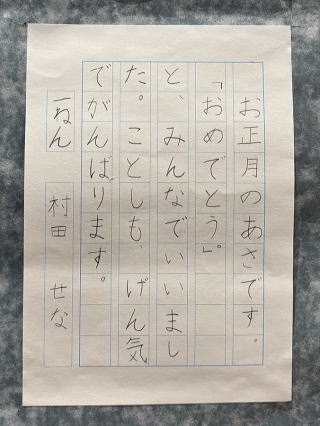 お正月のあさです。
「おめでとう。」
と、みんなでいいまし
た。ことしも、げん気
でがんばります。
一ねん 村田 せな